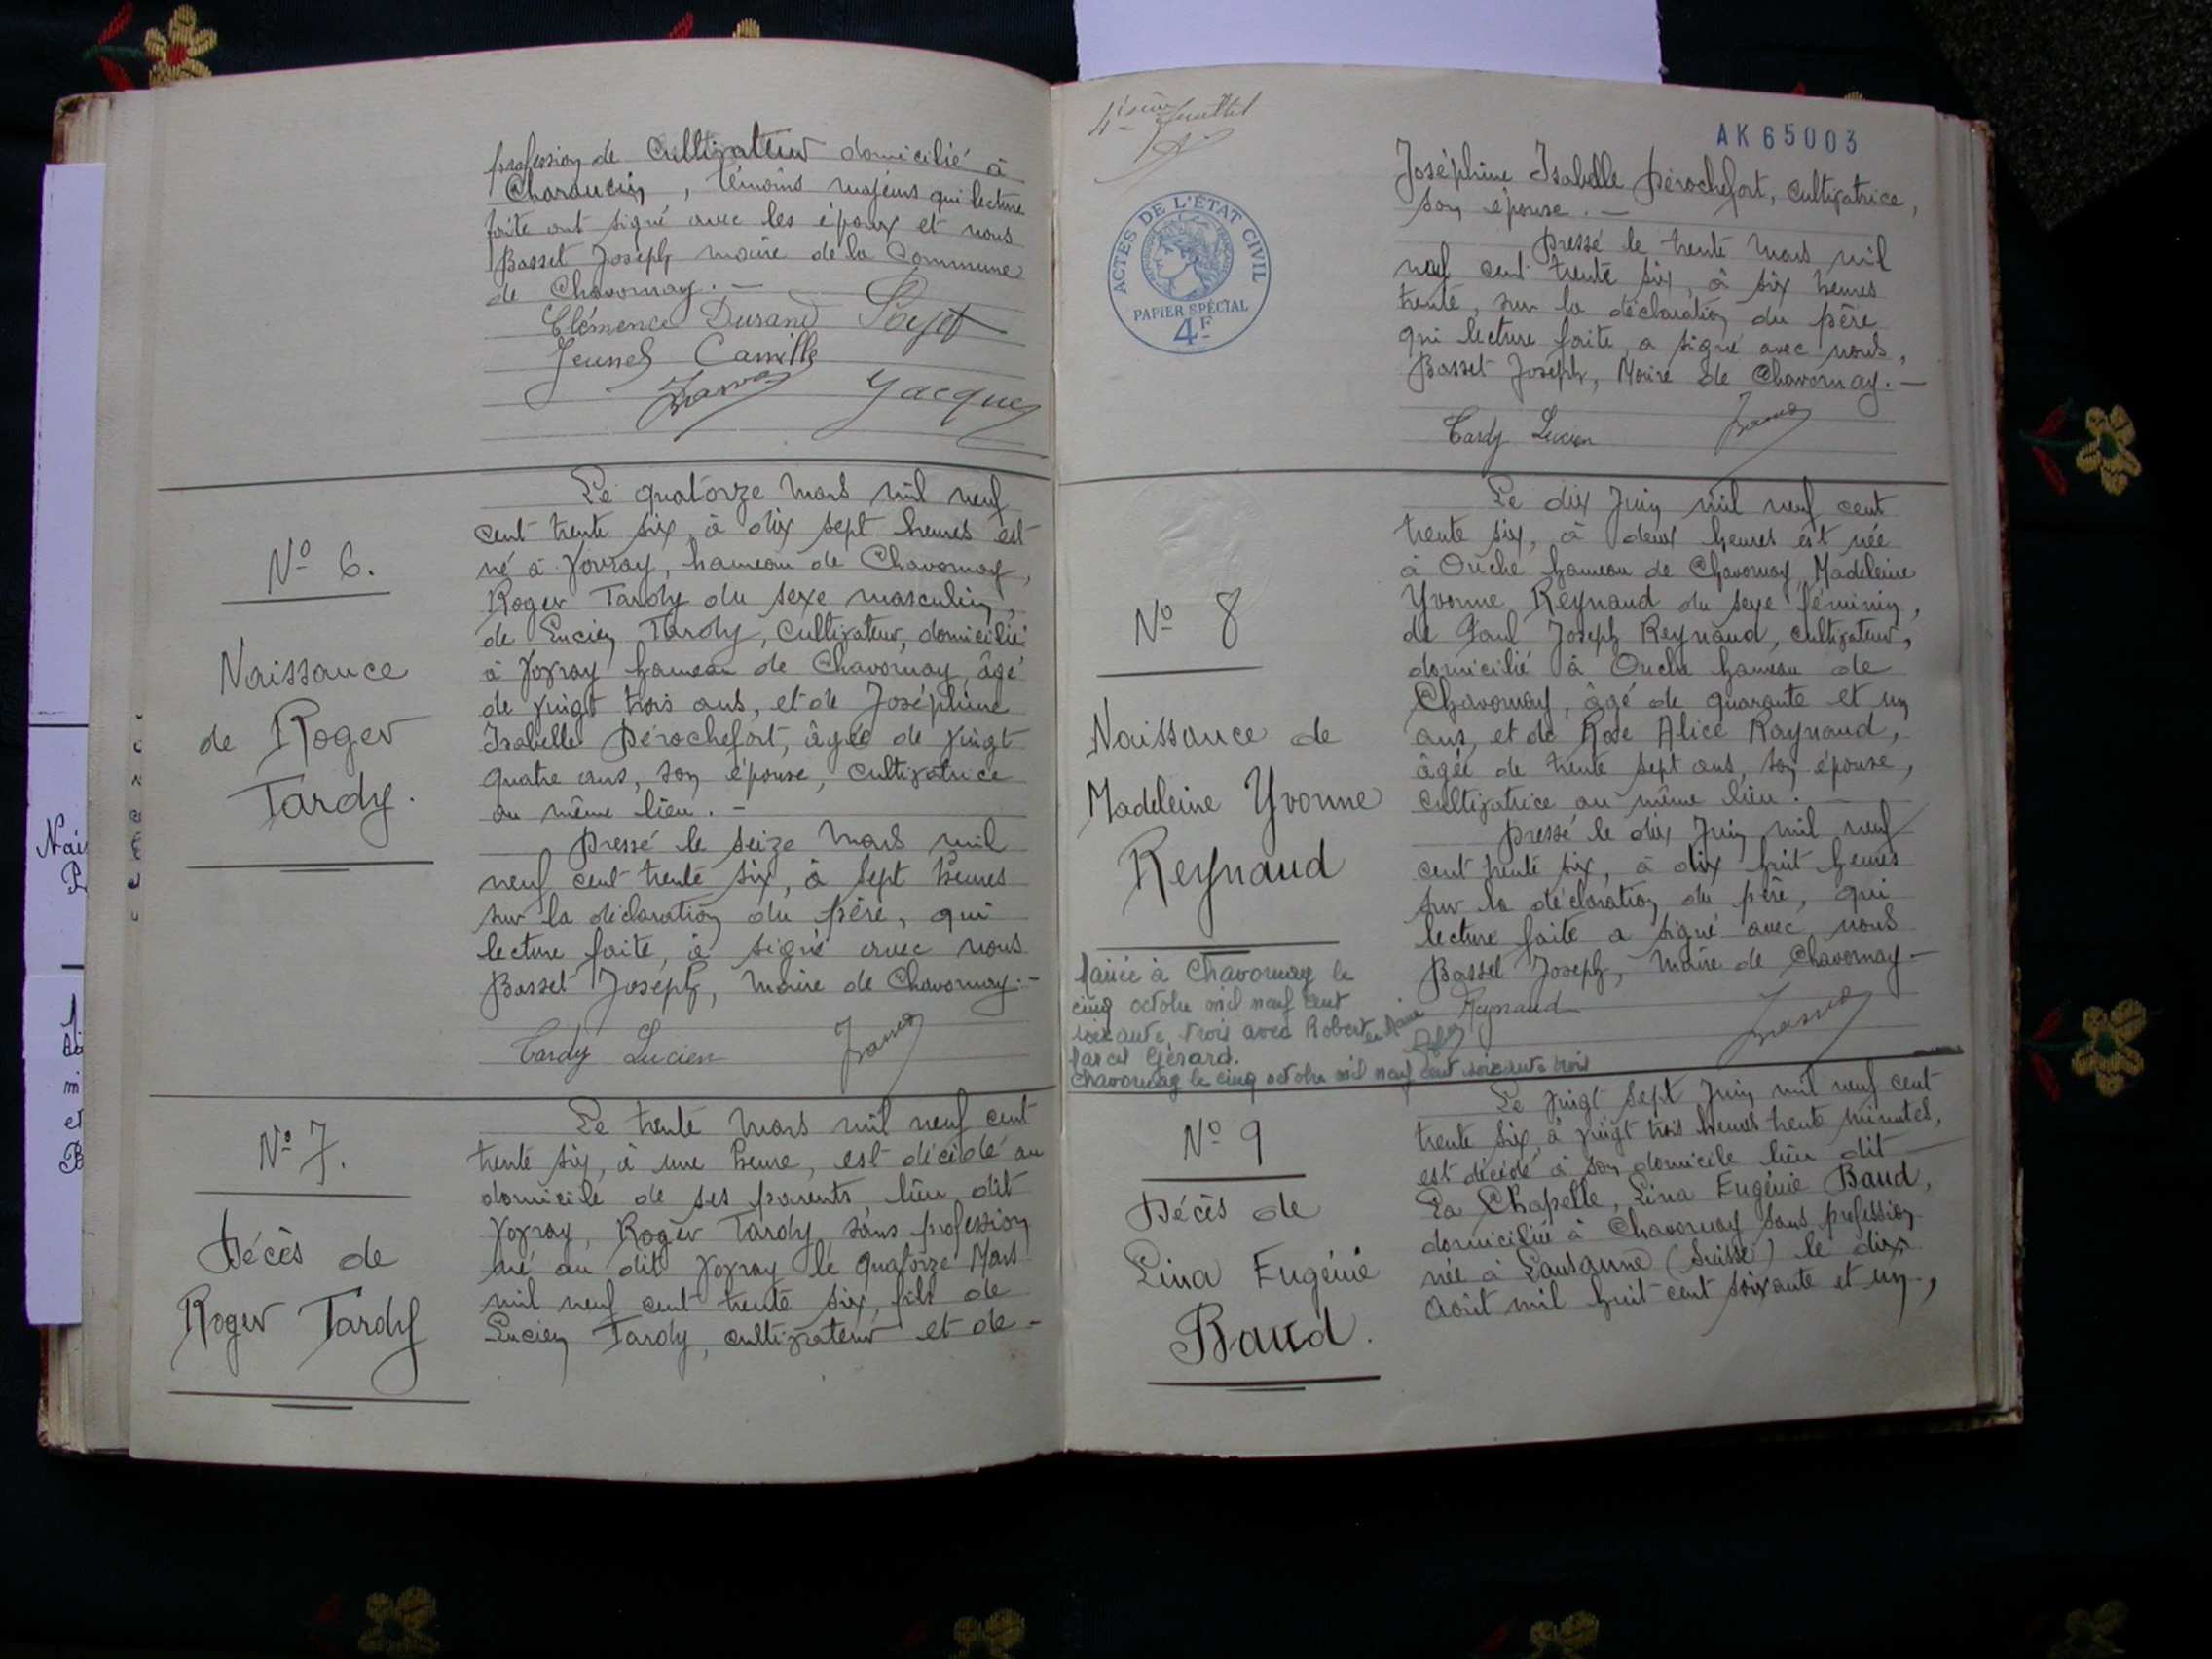 profession de Cultivateur domicilié à
Charancin, témoins majeurs qui lecture
faite ont signé avec les époux et nous
Basset Joseph maire de la Commune
de Chavornay. —
Clémence Durand
Camille
Jacques
Le quatorze Mars mil neuf
cent trente six, à dix sept heures est
né à Vovray, hameau de Chavornay,
Roger Tardy du sexe masculin,
de Lucien Tardy, Cultivateur, domicilié
à Vovray hameau de Chavornay, âgé
de vingt trois ans, et de Joséphine
Isabelle Pérochefort, âgée de vingt
quatre ans, son épouse, cultivatrice
au même lieu. —
Dressé le seize Mars mil
neuf cent trente six, à sept heures
sur la déclaration du père, qui
lecture faite, a signé avec nous
Basset Joseph, Maire de Chavornay. —
Tardy Lucien
N° 6.
Naissance
de Roger
Tardy.
Le trente Mars mil neuf cent
trente six, à une heure, est décédé au
domicile de ses parents lieu dit
Vovray, Roger Tardy, sans profession
né au dit Vovray le quatorze Mars
mil neuf cent trente six, fils de
Lucien Tardy, cultivateur et de —
N° 7.
Décès de
Roger Tardy
4ième feuillet
AK 65003
ACTES DE L'ÉTAT CIVIL
PAPIER SPÉCIAL
4F
Joséphine Isabelle Pérochefort, Cultivatrice,
son épouse. —
Dressé le trente Mars mil
neuf cent trente six, à six heures
trente, sur la déclaration du père
qui lecture faite, a signé avec nous,
Basset Joseph, Maire de Chavornay. —
Tardy Lucien
Le dix Juin mil neuf cent
trente six, à deux heures est née
à Ouche hameau de Chavornay Madeleine
Yvonne Reynaud du sexe féminin,
de Paul Joseph Reynaud, cultivateur,
domicilié à Ouche hameau de
Chavornay, âgé de quarante et un
ans, et de Rose Alice Raynaud,
âgée de trente sept ans, son épouse,
cultivatrice au même lieu. —
Dressé le dix Juin mil neuf
cent trente six, à dix huit heures
sur la déclaration du père, qui
lecture faite a signé avec nous
Basset Joseph, Maire de Chavornay —
Reynaud
N° 8
Naissance de
Madeleine Yvonne
Reynaud
à Chavornay le
cinq octobre mil neuf cent
soixante trois avec Robert
Gérard.
Chavornay le cinq octobre mil neuf cent soixante trois
Le vingt sept Juin mil neuf cent
trente six à vingt trois heures trente minutes,
est décédé à son domicile lieu dit —
La Chapelle, Lina Eugénie Baud,
domiciliée à Chavornay sans profession
née à Lausanne (Suisse) le dix
Août mil huit cent soixante et un,
N° 9
Décès de
Lina Eugénie
Baud.